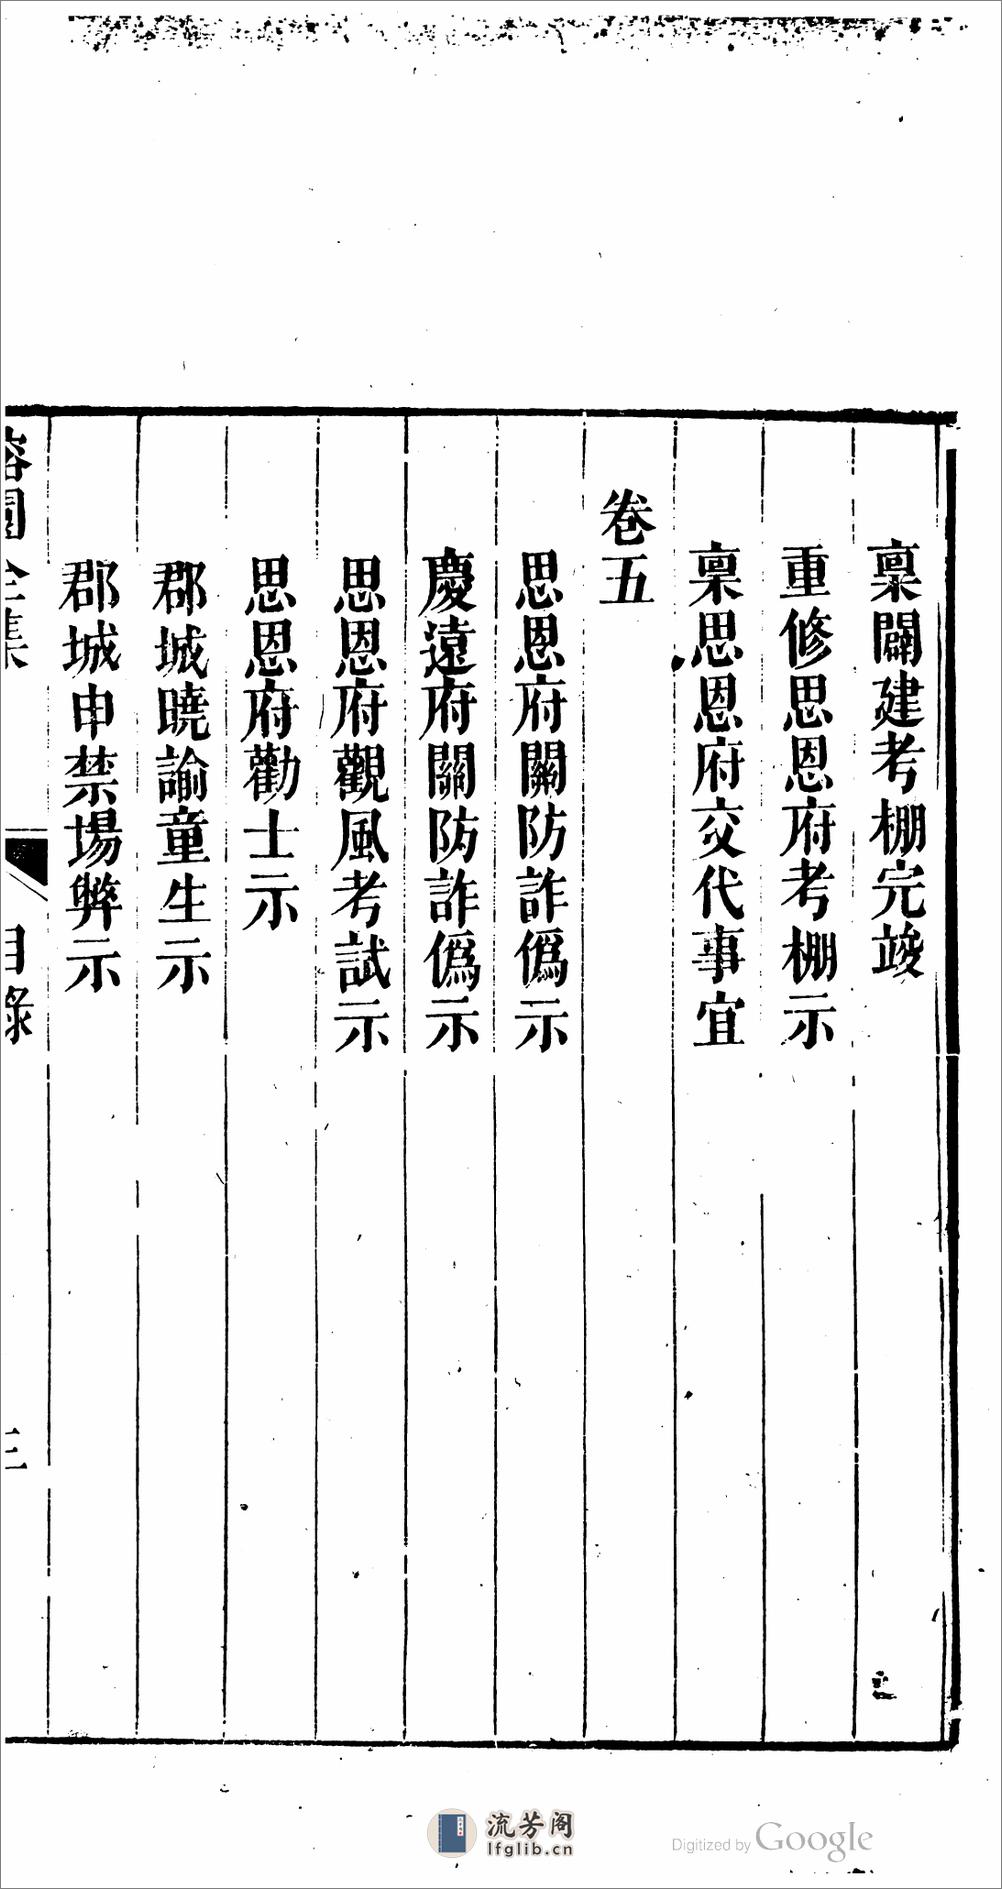 稟闢建考棚完竣
重修思恩府考棚示
稟思恩府交代事宜
卷五
思恩府關防詐僞示
慶遠府關防詐僞示
思恩府觀風考試示
思恩府勸士示
郡城曉諭童生示
郡城申禁場弊示
全集
目錄
三
流芳阁
lfglib.cn
Digitized by Google